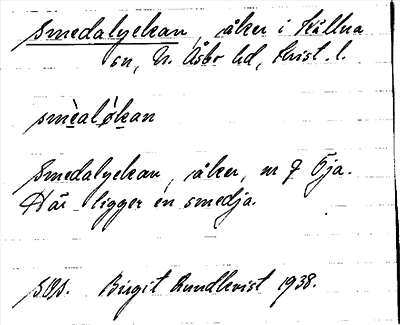 Smedalyckan, åker i Källna
sn, N. Åsbo hd, Krist. l.
smèalókan
Smedalyckan, åker, nr 7 Öja.
Där ligger en smedja.
Birgit Rundkvist 1938.